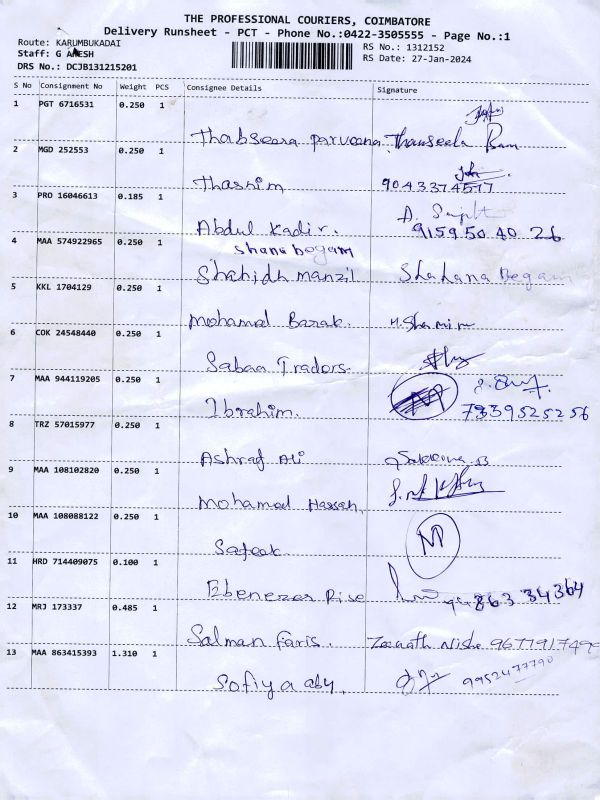 THE PROFESSIONAL COURIERS, COIMBATORE
Delivery Runsheet - PCT - Phone No.:0422-3505555 - Page No.:1
Route: KARUMBUKADAI
RS No.: 1312152
Staff: G
RS Date: 27-Jan-2024
DRS No.: DCJB131215201
S No Consignment No Weight PCS Consignee Details Signature
1 PGT 6716531 0.250 1
Thabseera parveena Thanseela Banu
2 MGD 252553 0.250 1
Thasnim 9043374577
3 PRO 16046613 0.185 1
Abdul Kadir. 9159504026
4 MAA 574922965 0.250 1
shana begam
Shahidh manzil Shahana Begam
5 KKL 1704129 0.250 1
Mohamad Barak. H.Shamim
6 COK 24548440 0.250 1
Sabaa Tradors.
7 MAA 944119205 0.250 1
Ibrahim. 7339525256
8 TRZ 57015977 0.250 1
Ashraf Ali
9 MAA 108102820 0.250 1
Mohamad Hassan,
10 MAA 108088122 0.250 1
Safeek
11 HRD 714409075 0.100 1
Ebenezer Rise
12 MRJ 173337 0.485 1
Salman Faris. Zeenath Nisha
13 MAA 863415393 1.310 1
Sofiya aby. 9952477790